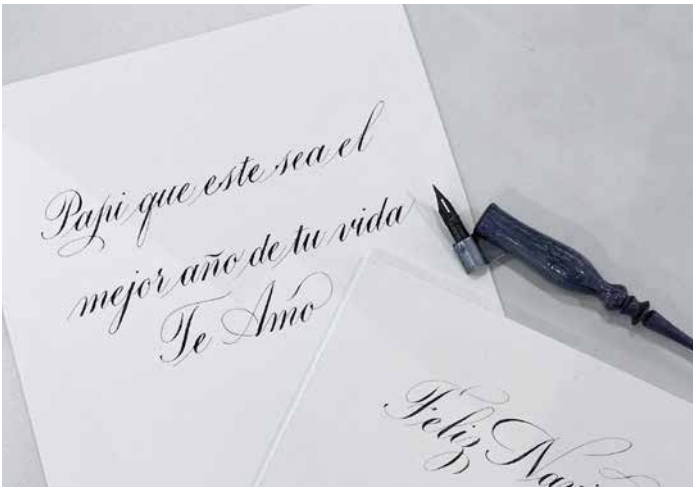 Papi que este sea el
mejor año de tu vida
Te Amo
Feliz